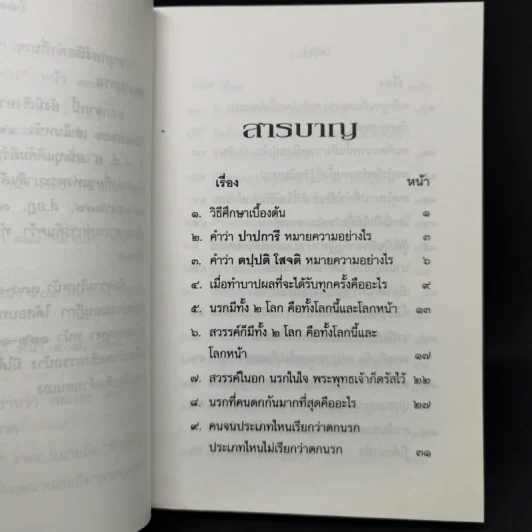 สารบาญ
เรื่อง หน้า
๑. วิธีศึกษาเบื้องต้น ๑
๒. คำว่า ปาปการี หมายความอย่างไร ๓
๓. คำว่า ตปฺปติ โสจติ หมายความอย่างไร ๖
๔. เมื่อทำบาปผลที่จะได้รับทุกครั้งคืออะไร ๙
๕. นรกมีทั้ง ๒ โลก คือทั้งโลกนี้และโลกหน้า ๑๓
๖. สวรรค์ก็มีทั้ง ๒ โลก คือทั้งโลกนี้และ
โลกหน้า ๑๗
๗. สวรรค์ในอก นรกในใจ พระพุทธเจ้าก็ตรัสไว้ ๒๒
๘. นรกที่คนตกกันมากที่สุดคืออะไร ๒๗
๙. คนจนประเภทไหนเรียกว่าตกนรก
ประเภทไหนไม่เรียกว่าตกนรก ๓๑